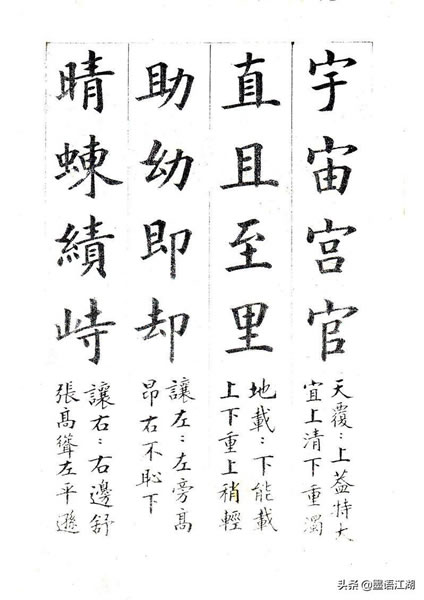 宇宙宮官
天覆：上蓋特大
宜上清下重濁
直且至里
地載：下能載
上下重上稍輕
助幼即却
讓左：左旁高
昂右不恥下
晴蝀績峙
讓右：右邊舒
張高聳左平遜
头条@墨语江湖